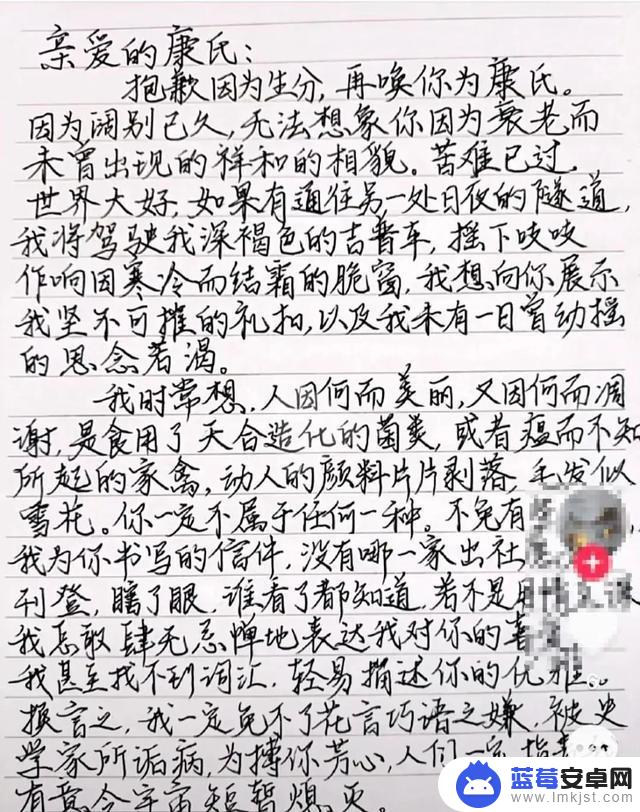 亲爱的康氏：
抱歉因为生分，再唤你为康氏。
因为阔别已久，无法想象你因为衰老而
未曾出现的祥和的相貌。苦难已过，
世界大好，如果有通往另一处日夜的隧道，
我将驾驶我深褐色的吉普车，摇下吱吱
作响因寒冷而结霜的脆窗，我想向你展示
我坚不可摧的礼拍，以及我未有一日曾动摇
的思念若渴。
我时常想，人因何而美丽，又因何而凋
谢，是食用了天合造化的菌类，或者瘟而不知
所起的家禽，动人的颜料片片剥落，毛发似
雪花。你一定不属于任何一种。不免有
我为你书写的信件，没有哪一家出社
刊登，瞎了眼，谁看了都知道，若不是
我怎敢肆无忌惮地表达我对你的喜
我甚至找不到词汇，轻易描述你的优雅。
换言之，我一定免不了花言巧语之嫌，被史
学家所诟病，为搏你芳心，人们一定指责
有意令宇宙短暂熄灭。
蓝莓安卓网
www.lmkjst.com